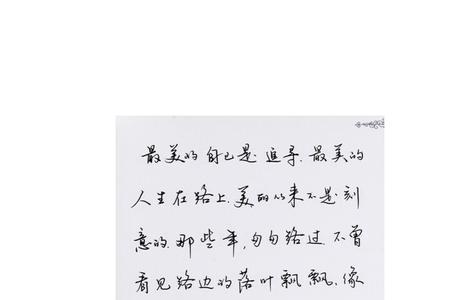 最美的自己是追寻.最美的
人生在路上.美的从来不是刻
意的.那些年,匆匆路过不曾
看见路边的落叶飘飘.像